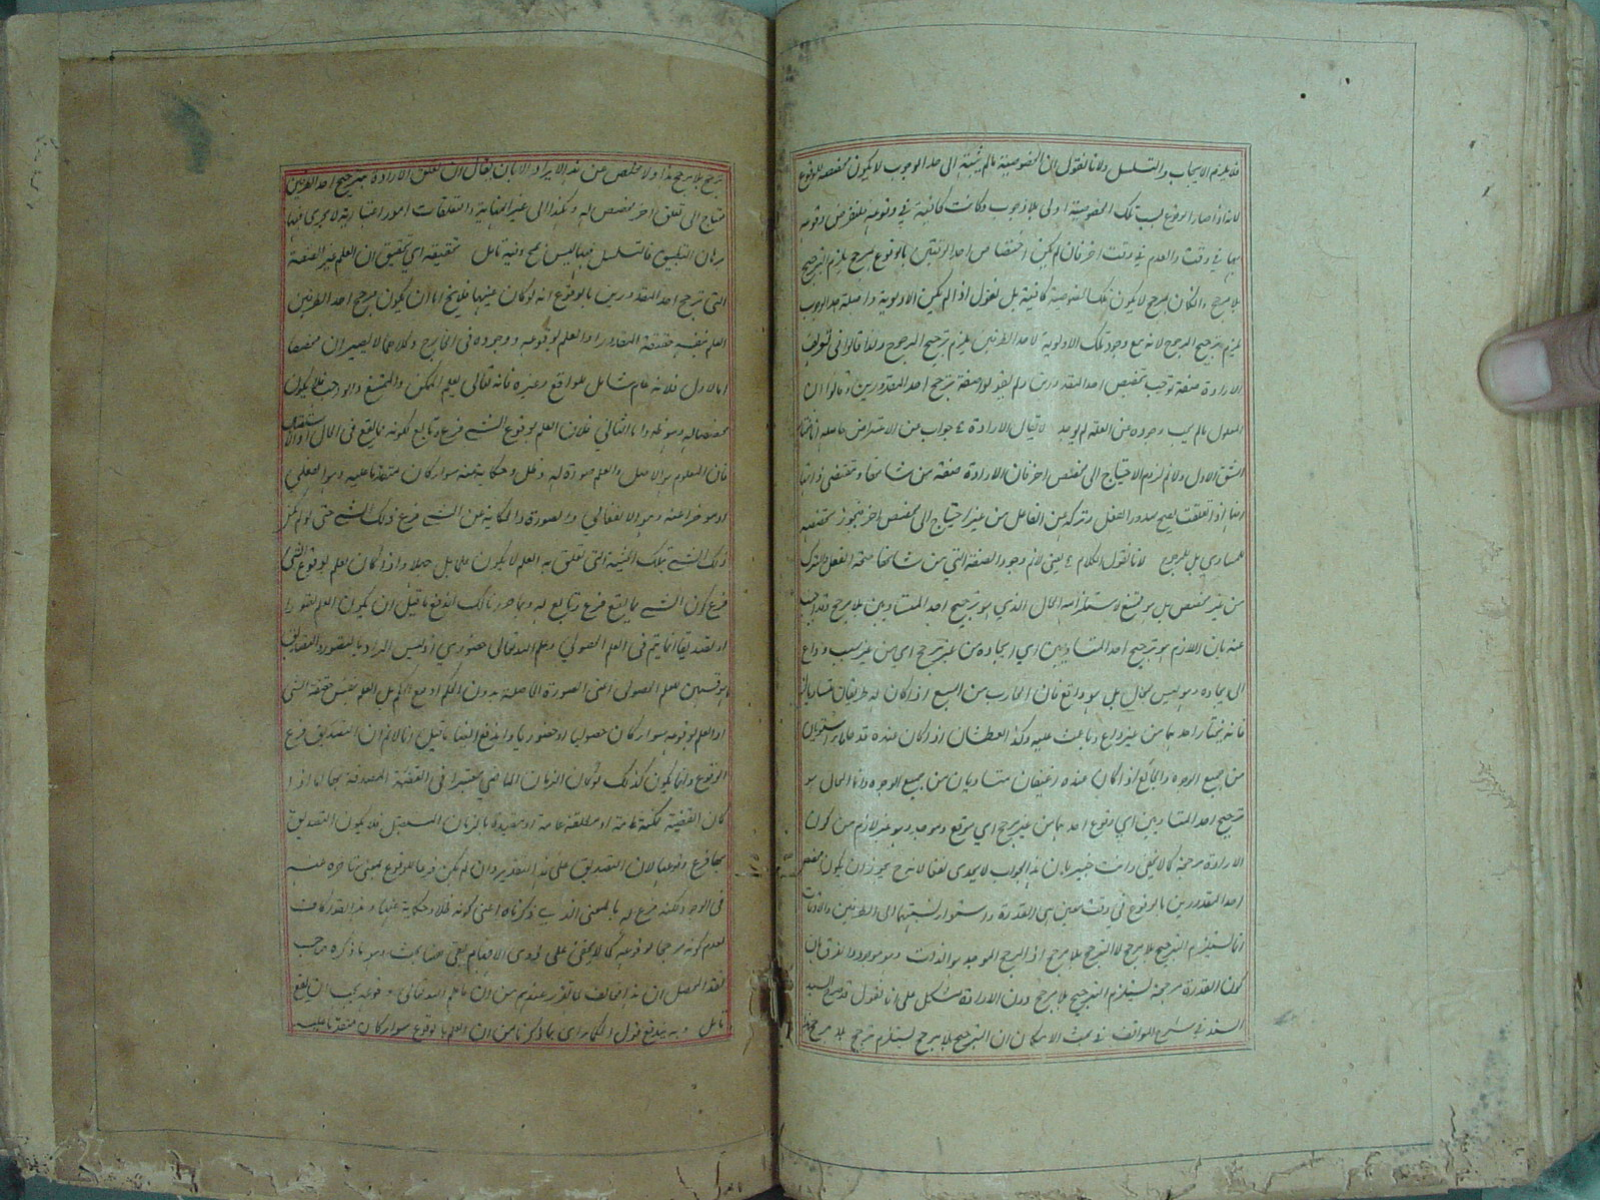 فلا يلزم الايجاب والتسلسل ولانا نقول ان الخصوصية مالم ينته الى حد الوجوب لا يكون مخصصة للوقوع
لانه اذا صار الوقوع بسبب تلك الخصوصية اولى بلا وجوب وكانت كافية في وقوعه فلنفرض وقوعه
بها في وقت والعدم في وقت اخر فان لم يكن اختصاص احد الوقتين بالوقوع لمرجح يلزم الترجيح
بلا مرجح وان كان لمرجح لا يكون تلك الخصوصية كافية بل نقول اذا لم يكن الاولوية واصلة حد الوجوب
يلزم ترجيح المرجوح لانه مع وجود تلك الاولوية لاحد الطرفين يلزم ترجيح المرجوح ولذا قالوا في تعريف
الارادة صفة توجب تخصيص احد المقدورين ولم يقولوا صفة ترجح احد المقدورين وقالوا ان
المعلول مالم يجب وجوده عن العلة لم يوجد لا يقال الارادة جواب من الاعتراض حاصله انا نختار
الشق الاول ولانم لزوم الاحتياج الى مخصص اخر فان الارادة صفة من شانها ومقتضى ذاتها
انها اذا تعلقت يصح صدور الفعل وتركه من الفاعل من غير احتياج الى مخصص اخر فيجوز تخصيصه
للمساوي بل المرجوح لانا نقول الكلام يعني لانم وجود الصفة التي من شانها صحة الفعل والترك
من غير مخصص بل هو ممتنع لاستلزامه المحال الذي هو ترجيح احد المتساويين بلا مرجح وقد اجيب
عنه بان اللازم هو ترجيح احد المتساويين اي ايجاده من غير مرجح اي من غير سبب وداع
الى ايجاده وهو ليس بمحال بل هو واقع فان الهارب من السبع اذا كان له طريقان متساويان
فانه يختار احدهما من غير داع وباعث عليه وكذا العطشان اذا كان عنده قدحا ماء مستويان
من جميع الوجوه والجائع اذا كان عنده رغيفان متساويان من جميع الوجوه وانما المحال هو
ترجيح احد المتساويين اي وقوع احدهما من غير مرجح اي موقع وموجد وهو غير لازم من كون
الارادة مرجحة كما لا يخفى وانت خبير بان هذا الجواب لا يجدى نفعا لانه ح يجوز ان يكون مخصص
احد المقدورين بالوقوع في وقت معين هي القدرة واستواء نسبتها الى الطرفين والاوقات
انما يستلزم الترجيح بلا مرجح لا الترجح بلا مرجح اذ المرجح الموجد هو الذات وهو موجود والفرق بان
كون القدرة مرجحة يستلزم الترجيح بلا مرجح دون الارادة مشكل على انا نقول قد صرح السيد
السند في شرح المواقف في بحث الامكان ان الترجيح بلا مرجح يستلزم ترجح بلا مرجح
ترجح بلا مرجح هذا ولا مخلص من هذا الايراد الا بان يقال ان تعلق الارادة بترجيح احد الطرفين
محتاج الى تعلق اخر مخصص له وهكذا الى غير النهاية والتعلقات امور اعتبارية لا يجرى فيها
برهان التطبيق فالتسلسل فيها ليس بمح وفيه تامل تحقيقه اي تحقيق ان العلم غير الصفة
التي ترجح احد المقدورين بالوقوع انه لو كان عينها فلا يخ اما ان يكون مرجح احد الطرفين
العلم بنفسه حقيقة المقدور او العلم بوقوعه ووجوده في الخارج وكلاهما لا يصيران مخصصا
اما الاول فلانه عام شامل للواقع وغيره فانه تعالى يعلم الممكن والممتنع والواجب فلا يكون
مخصصا له وهو ظ واما الثاني فلان العلم بوقوع الشيء فرع وتابع لكونه مما يقع في الحال او الاستقبال
فان المعلوم هو الاصل والعلم صورة له وظل وحكاية عنه سواء كان متقدما عليه وهو الفعلي
او مؤخرا عنه وهو الانفعالي والصورة والحكاية عن الشيء فرع ذلك الشيء حتى لو لم يكن
ذلك الشيء بتلك الحيثية التي تعلق به العلم لا يكون علما بل جهلا واذا كان العلم بوقوع الشيء
فرع كون الشيء مما يقع فرع وتابع له وبما حررنا لك اندفع ما قيل ان يكون العلم تصورا
او تصديقا انما يتم في العلم الحصولي وعلم الله تعالى حضوري اذ ليس المراد بالتصور والتصديق
ما هو قسمين للعلم الحصولى اعنى الصورة الحاصلة بدون الحكم او مع الحكم بل العلم بنفس حقيقة الشيء
او العلم بوقوعه سواء كان حصوليا او حضوريا واندفع ايضا ما قيل انا لانم ان التصديق فرع
الوقوع وانما يكون كذلك لو كان الزمان الماضي معتبرا في القضية المصدقة بها اما اذا
كان القضية ممكنة عامة او مطلقة عامة او مقيدة بالزمان المستقبل فلا يكون التصديق
بها فرع وقوعها لان التصديق على هذا التقدير وان لم يكن فرعا للوقوع بمعنى متاخره عنه
في الوجود لكنه فرع له بالمعنى الذي ذكرناه اعنى كونه ظلا وحكاية عنها وهذا القدر كاف
لعدم كونه مرجحا لوقوعه كما لا يخفى على ذوى الافهام بقى ههنا بحث وهو ما ذكره صاحب
نقد المحصل ان هذا مخالف لما تقرر عندهم من ان ما علم الله تعالى وقوعه يجب ان يقع
تامل وبه يندفع قول الحكماء اى بما ذكرنا من ان العلم بالوقوع سواء كان متقدما عليه